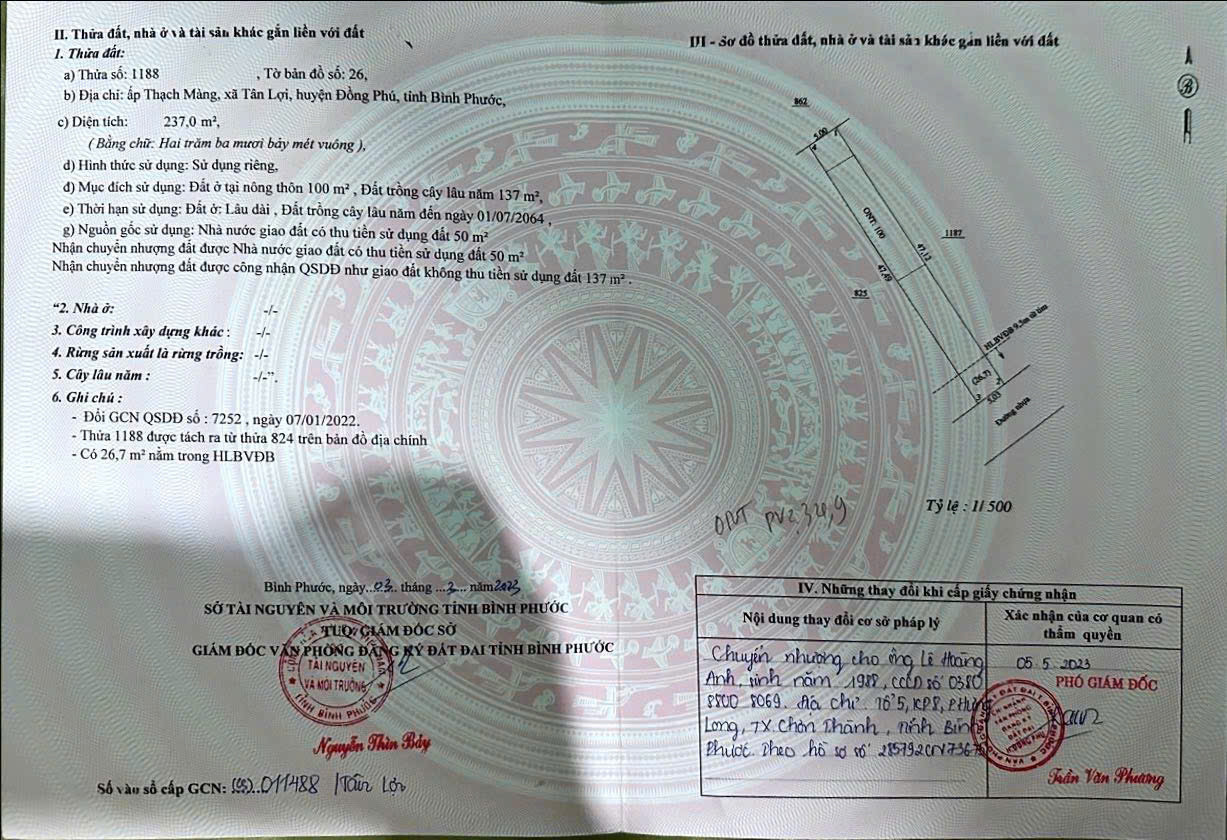 II. Thửa đất, nhà ở và tài sản khác gắn liền với đất
1. Thửa đất:
a) Thửa số: 1188 , Tờ bản đồ số: 26,
b) Địa chỉ: ấp Thạch Màng, xã Tân Lợi, huyện Đồng Phú, tỉnh Bình Phước,
c) Diện tích: 237,0 m²,
( Bằng chữ: Hai trăm ba mươi bảy mét vuông ),
d) Hình thức sử dụng: Sử dụng riêng,
đ) Mục đích sử dụng: Đất ở tại nông thôn 100 m² , Đất trồng cây lâu năm 137 m²,
e) Thời hạn sử dụng: Đất ở: Lâu dài , Đất trồng cây lâu năm đến ngày 01/07/2064 ,
g) Nguồn gốc sử dụng: Nhà nước giao đất có thu tiền sử dụng đất 50 m²
Nhận chuyển nhượng đất được Nhà nước giao đất có thu tiền sử dụng đất 50 m²
Nhận chuyển nhượng đất được công nhận QSDĐ như giao đất không thu tiền sử dụng đất 137 m² .
“2. Nhà ở: -/-
3. Công trình xây dựng khác : -/-
4. Rừng sản xuất là rừng trồng: -/-
5. Cây lâu năm : -/-”.
6. Ghi chú :
- Đổi GCN QSDĐ số : 7252 , ngày 07/01/2022.
- Thửa 1188 được tách ra từ thửa 824 trên bản đồ địa chính
- Có 26,7 m² nằm trong HLBVĐB
Bình Phước, ngày..03.. tháng ...3... năm 2023
SỞ TÀI NGUYÊN VÀ MÔI TRƯỜNG TỈNH BÌNH PHƯỚC
TUQ. GIÁM ĐỐC SỞ
GIÁM ĐỐC VĂN PHÒNG ĐĂNG KÝ ĐẤT ĐAI TỈNH BÌNH PHƯỚC
SỞ
TÀI NGUYÊN
VÀ MÔI TRƯỜNG
TỈNH BÌNH PHƯỚC
Nguyễn Thìn Bảy
Số vào sổ cấp GCN: (CS)..011488 /Tân Lợi
III - Sơ đồ thửa đất, nhà ở và tài sản khác gắn liền với đất
B
862
5.00
1
4
ONT: 100
1187
47.12
47.49
825
HLBVĐB 9,5m từ tim
(26,7)
2
3
5.03
Đường nhựa
Tỷ lệ : 1/ 500
ONT
IV. Những thay đổi khi cấp giấy chứng nhận
Nội dung thay đổi cơ sở pháp lý
Xác nhận của cơ quan có
thẩm quyền
Chuyển nhượng cho ông Lê Hoàng
Anh, sinh năm 1988, CCCD số 0380
8800 8069. Địa chỉ: Tổ 5, KP8, P.Hưng
Long, TX. Chơn Thành, tỉnh Bình
Phước. Theo hồ sơ số
05.5.2023
PHÓ GIÁM ĐỐC
Trần Văn Phương